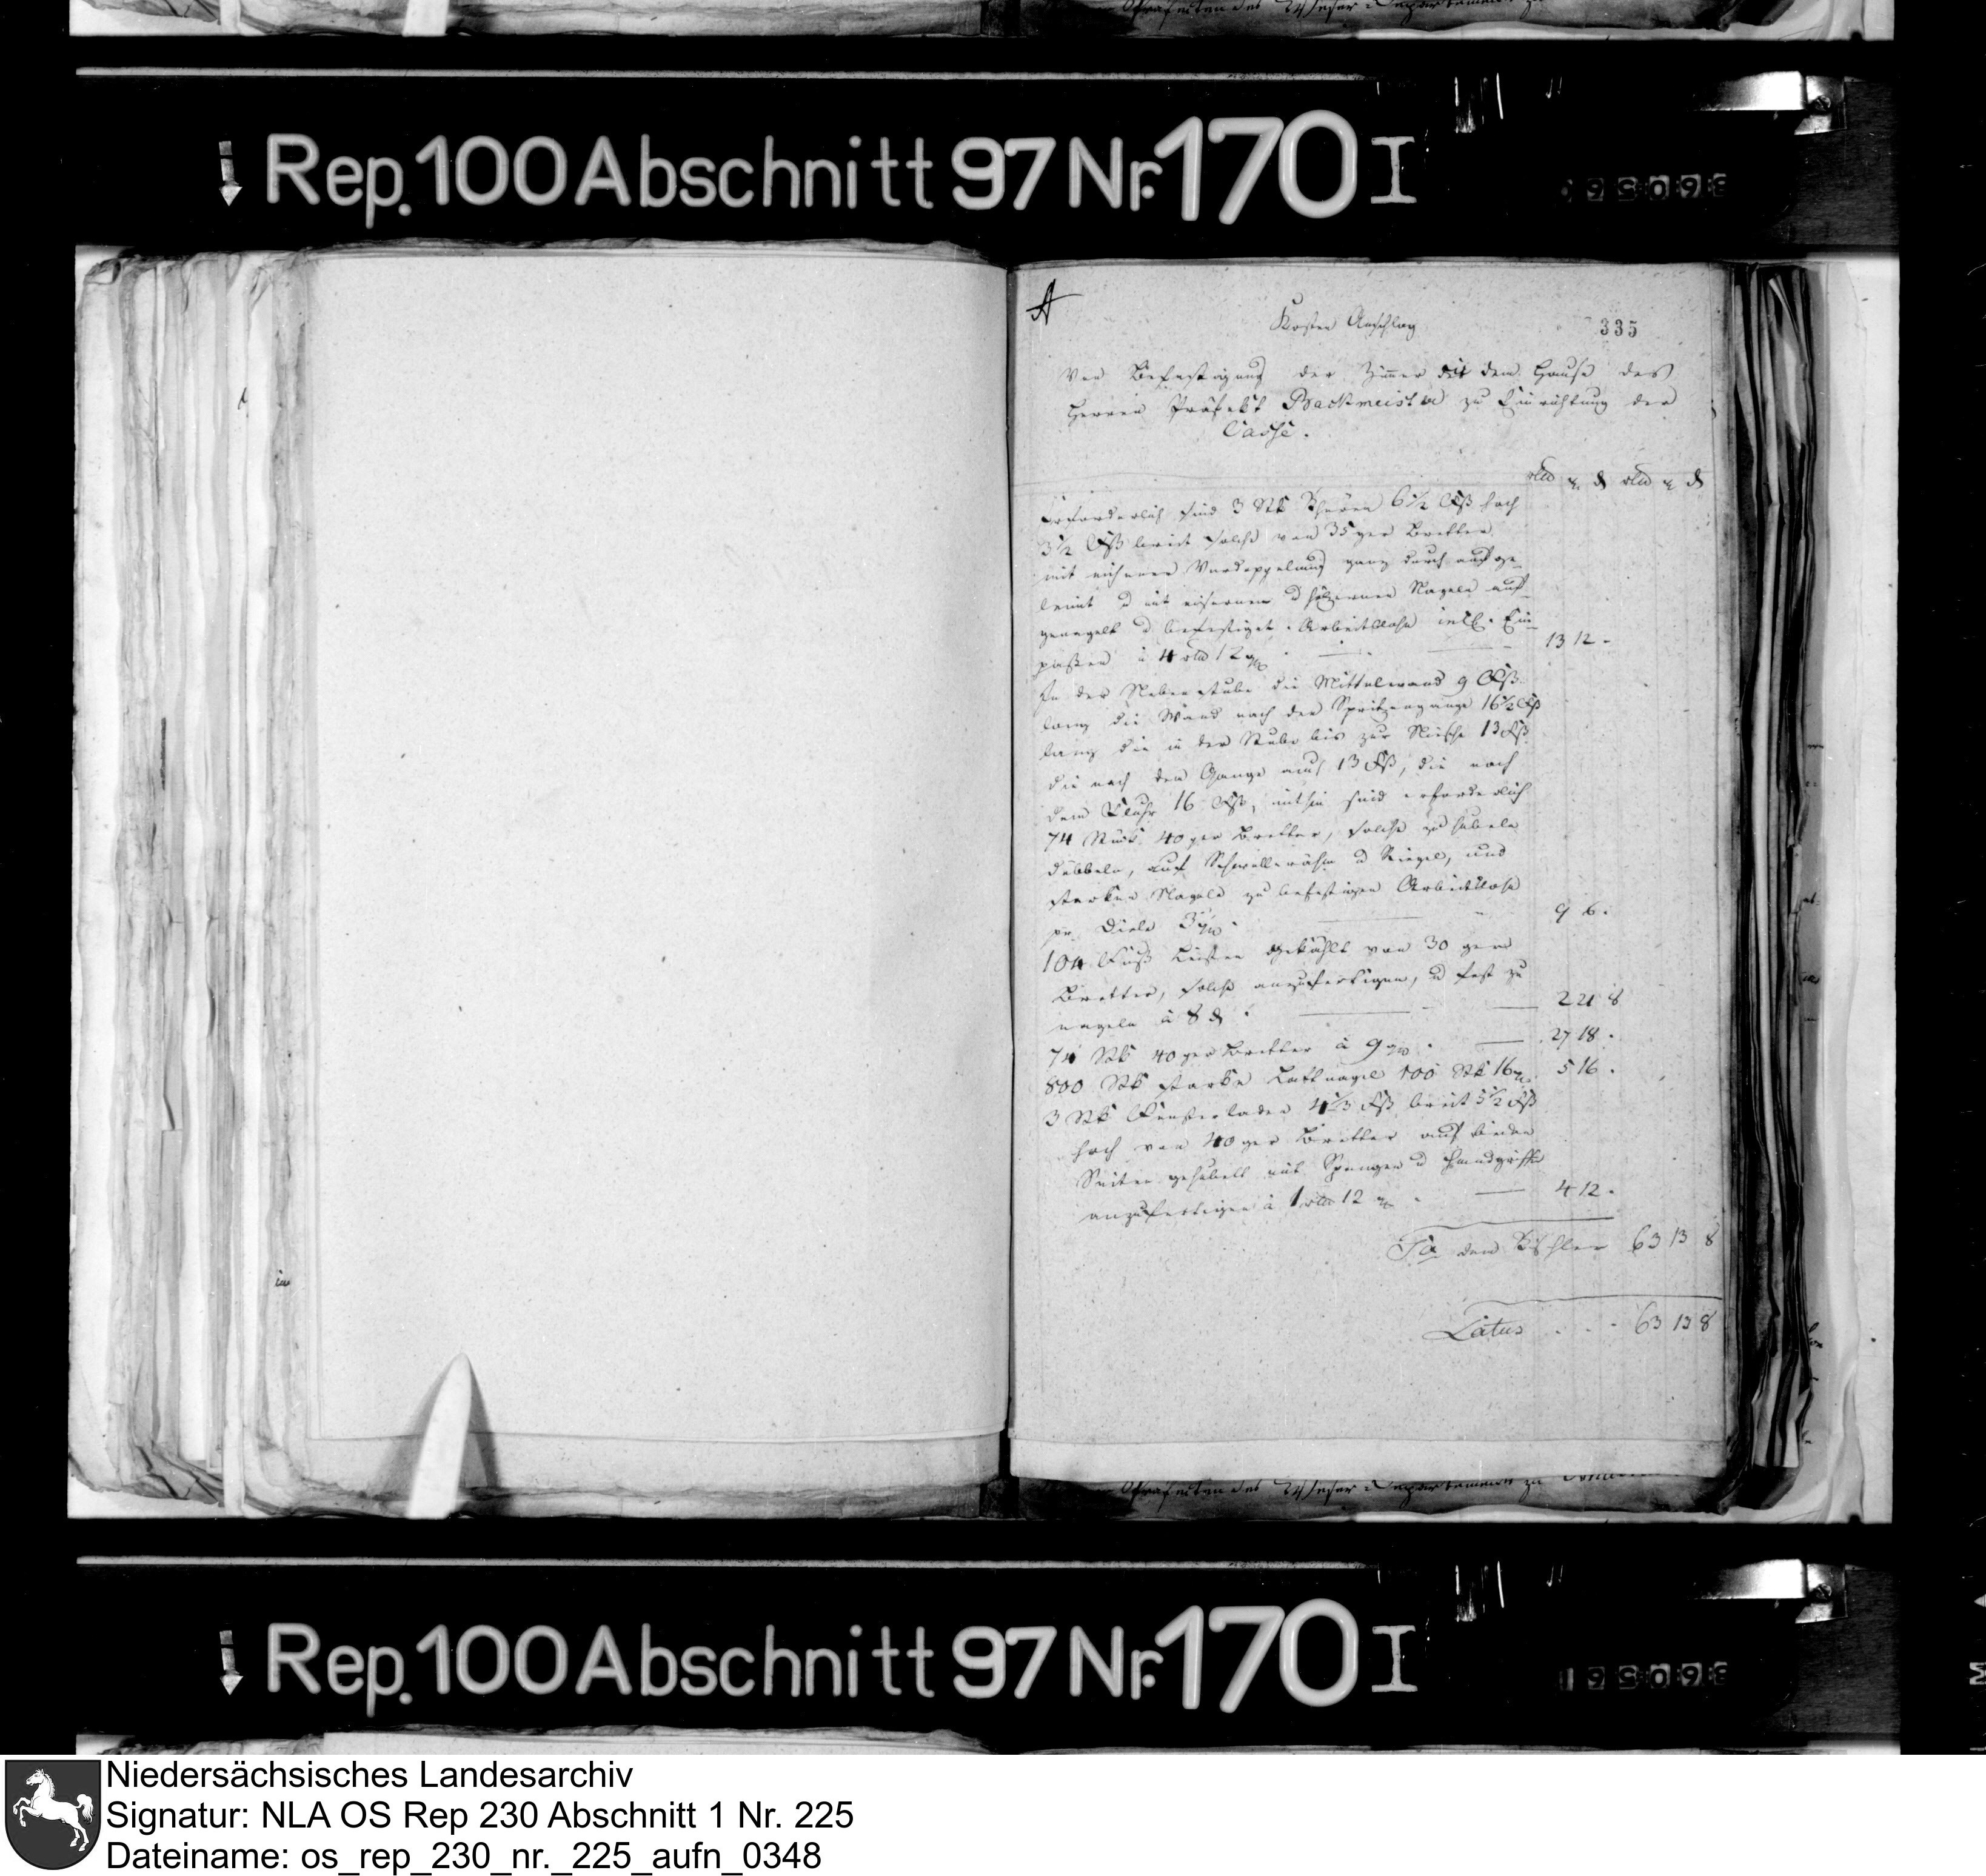 Rep. 100 Abschnitt 97 Nr. 170 I
A
335
Kosten Anschlag
Von Befestigung der Zimmer in dem Hause des
Herren Präfekt Backmeister zu Einrichtung der
Casse.
Erforderlich sind 3 Stk Thüren 6 1/2 Fuß hoch
3 1/2 Fuß breit solche von 35ger Bretter
mit eichenen Verdoppelung ganz durch auf ge-
leimt u mit eisernen u hölzernen Nageln auf-
genagelt u befestiget. Arbeitslohn incl. Ein-
paßen à 4 rtlr 12 ggr 13 12 -
In der Nebenstube die Mittelwand 9 Fuß
lang die Wand nach der Spritzengange 16 1/2 Fuß
lang die in der Stube bis zur Nische 13 Fuß
die nach dem Gange auch 13 Fuß, die nach
dem Fluhr 16 Fuß, mithin sind erforderlich
74 Stück 40ger Bretter, solche zu hubeln
dübbeln, auf Schwellrähm u Riegel, und
starken Nageln zu befestigen Arbeitslohn
pr. Diele 3 ggr 9 6 .
104 Fuß Leisten gekählt von 30 ger
Bretter, solche anzufertigen, u fest zu
nageln à 8 d 2 21 8
74 Stk 40ger Bretter à 9 ggr 27 18 .
800 Stk starke Lattnagel 100 Stk 16 5 16 .
3 Stk Fensterladen 4 1/3 Fuß breit 5 1/2 Fuß
hoch von 40ger Bretter auf beiden
Seiten gehubelt mit Spangen u Handgriffe
anzufertigen à 1 rtlr 12 4 12 .
Sa den Tischler 63 13 8
Latus . . . 63 13 8
Präfecten des Weser-Departements zu
Rep. 100 Abschnitt 97 Nr. 170 I
Niedersächsisches Landesarchiv
Signatur: NLA OS Rep 230 Abschnitt 1 Nr. 225
Dateiname: os_rep_230_nr._225_aufn_0348